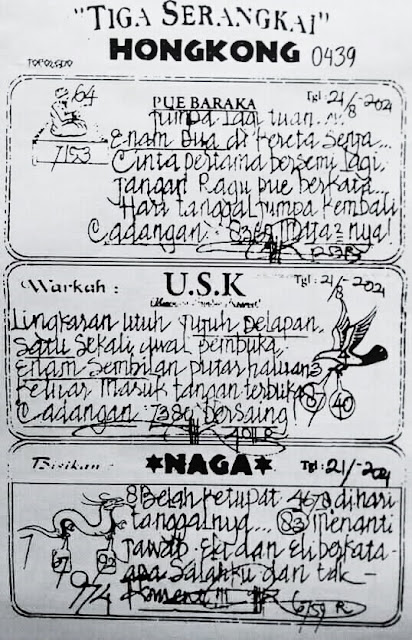 "TIGA SERANGKAI"
HONGKONG 0439
64
7153
PUE BARAKA
Tgl : 21/8-2021
Jumpa lagi tuan...
Enam Dua di kereta senja...
Cinta pertama bersemi lagi,
Jangan Ragu pue berkata...
Hari tanggal jumpa kembali
Cadangan :
Warkah :
U.S.K
Tgl : 21/8-2021
Lingkaran utuh Tujuh Delapan,
Satu Sekali awal pembuka,
Enam Sembilan putar haluan
Keluar masuk tangan terbuka
Cadangan : 7389 bersaing!
87 40
Bisikan :
*NAGA*
Tgl : 21/-2021
8 Belah ketupat 4678 di hari
tanggalnya... 83 menanti
jawab Eka dan Eli berkata-
apa Salahku dan tak -
6759 R